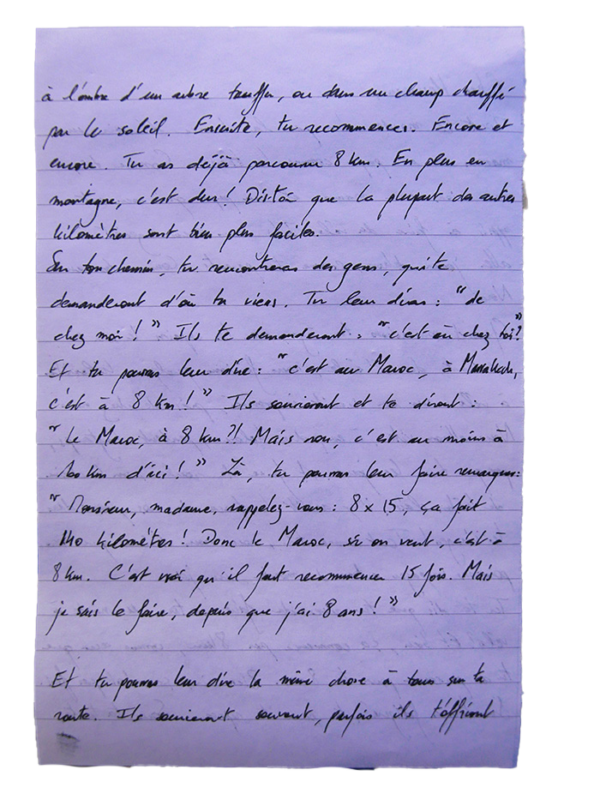 à l'ombre d'un arbre touffu, ou dans un champ chauffé
par le soleil. Ensuite, tu recommences. Encore et
encore. Tu as déjà parcouru 8 km. En plus en
montagne, c'est dur ! Dis-toi que la plupart des autres
kilomètres sont bien plus faciles.
Sur ton chemin, tu rencontreras des gens, qui te
demanderont d'où tu viens. Tu leur diras : "de
chez moi ! " Ils te demanderont : "c'est où chez toi ?"
Et tu pourras leur dire : "c'est au Maroc, à Marrakech,
c'est à 8 km ! " Ils souriront et te diront :
" Le Maroc, à 8 km ?! Mais non, c'est au moins à
100 km d'ici ! " Là, tu pourras leur faire remarquer :
" Monsieur, madame, rappelez-vous : 8 x 15, ça fait
140 kilomètres ! Donc le Maroc, si on veut, c'est à
8 km. C'est vrai qu'il faut recommencer 15 fois. Mais
je sais le faire, depuis que j'ai 8 ans ! "
Et tu pourras leur dire la même chose à tous sur ta
route. Ils souriront souvent, parfois ils t'offriront